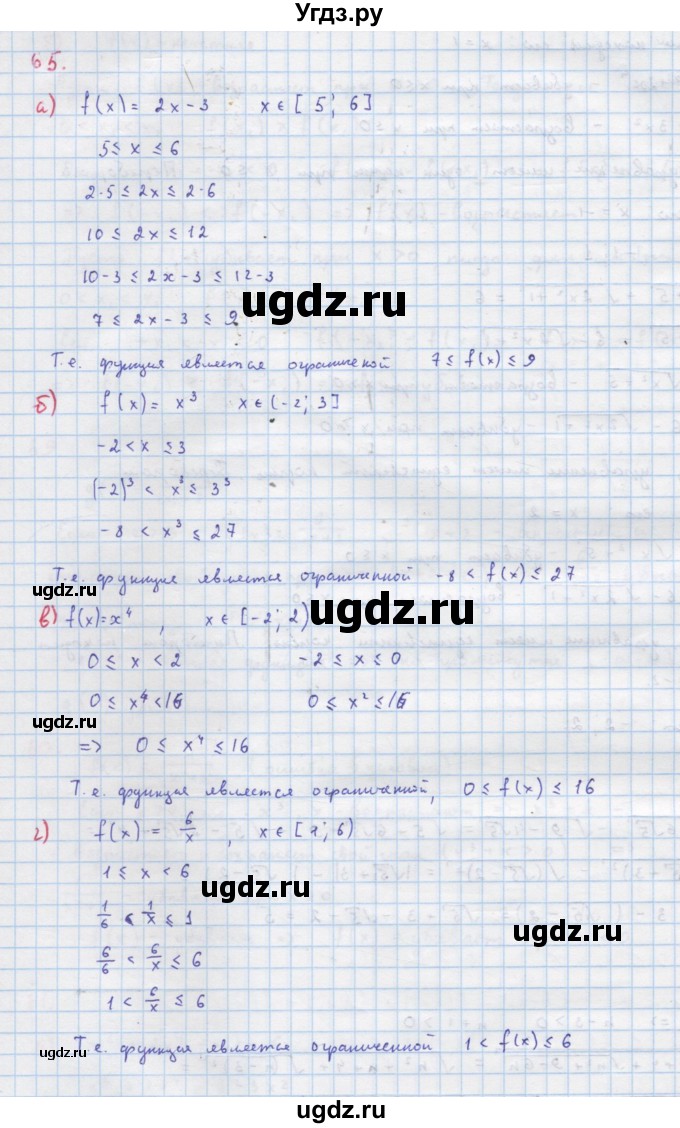 Угдз.ру
65.
а) f(x) = 2x - 3 x ∈ [5; 6]
5 ≤ x ≤ 6
2·5 ≤ 2x ≤ 2·6
10 ≤ 2x ≤ 12
10-3 ≤ 2x-3 ≤ 12-3
ugdz.ru
7 ≤ 2x-3 ≤ 9
Т.е. функция является ограниченой 7 ≤ f(x) ≤ 9
б) f(x) = x³ x ∈ (-2; 3]
-2 < x ≤ 3
(-2)³ < x³ ≤ 3³
-8 < x³ ≤ 27
Т.е. функция является ограниченной -8 < f(x) ≤ 27
ugdz.ru
ugdz.ru
в) f(x)=x⁴, x ∈ [-2; 2)
0 ≤ x < 2 -2 ≤ x ≤ 0
0 ≤ x⁴ < 16 0 ≤ x² ≤ 16
ugdz.ru
=> 0 ≤ x⁴ ≤ 16
Т.е. функция является ограниченной, 0 ≤ f(x) ≤ 16
г) f(x) = 6/x, x ∈ [1; 6)
1 ≤ x < 6
ugdz.ru
1/6 < 1/x ≤ 1
ugdz.ru
6/6 < 6/x ≤ 6
1 < 6/x ≤ 6
Т.е. функция является ограниченной 1 < f(x) ≤ 6
ugdz.ru
ugdz.ru